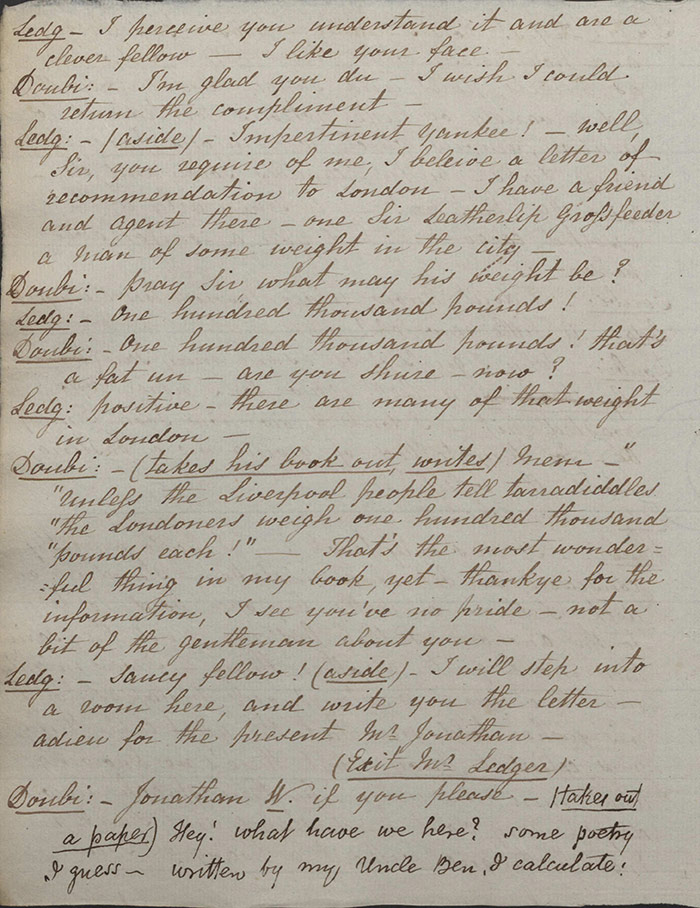 Ledg – I perceive you understand it and are a
clever fellow — I like your face –
Doubi: – I'm glad you du – I wish I could
return the compliment –
Ledg: – (aside) – Impertinent Yankee! – well
Sir, you require of me, I beleive a letter of
recommendation to London – I have a friend
and agent there – one Sir Leatherlip Groſsfeeder
a man of some weight in the city –
Doubi: – pray Sir what may his weight be?
Ledg: – One hundred thousand pounds!
Doubi: – One hundred thousand pounds! that's
a fat un – are you shure – now?
Ledg: positive – there are many of that weight
in London –
Doubi: – (takes his book out, writes) Mem – "
"unleſs the Liverpool people tell tarradiddles
"the Londoners weigh one hundred thousand
"pounds each!" — That's the most wonder=
=ful thing in my book, yet – thankye for the
information, I see you've no pride – not a
bit of the gentleman about you –
Ledg: – saucy fellow! (aside) – I will step into
a room here, and write you the letter –
adieu for the present Mr Jonathan –
(Exit Mr Ledger)
Doubi: – Jonathan W. if you please – (takes out
a paper) Hey! what have we here? some poetry
I guess – written by my Uncle Ben, I calculate: